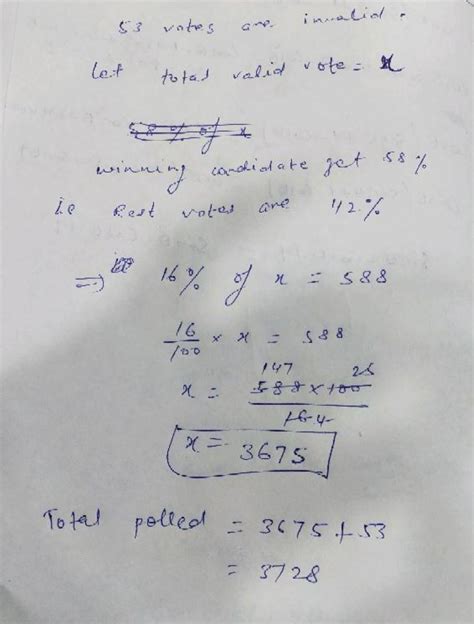 53 votes are invalid.
Let total valid vote = x
58 % of x
winning candidate get 58 %
i.e Rest votes are 42.%
⇒ 16% of x = 588
16/100 × x = 588
147 25
x = 588 × 100
16 4
x = 3675
Total polled = 3675 + 53
= 3728